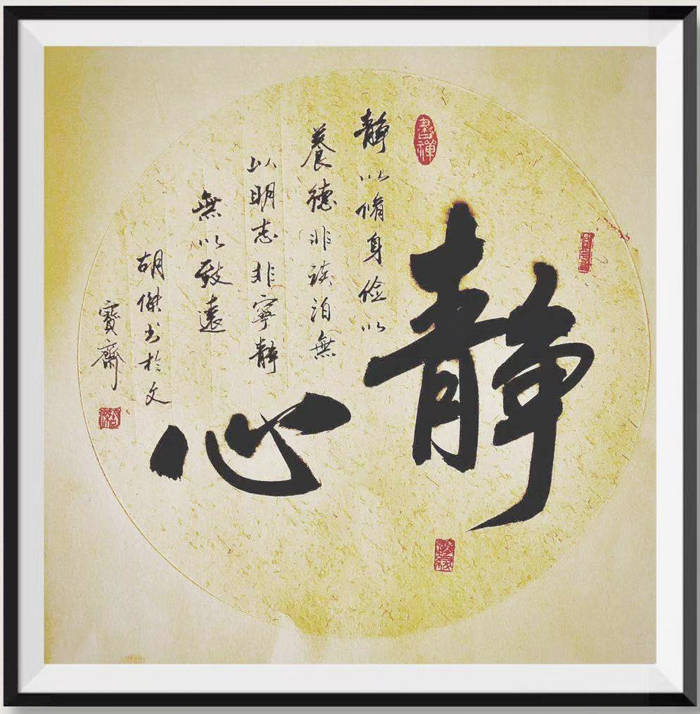 静心
書禪
静以脩身俭以
養德非淡泊無
以明志非寧静
無以致遠
胡傑书於文
寶齋